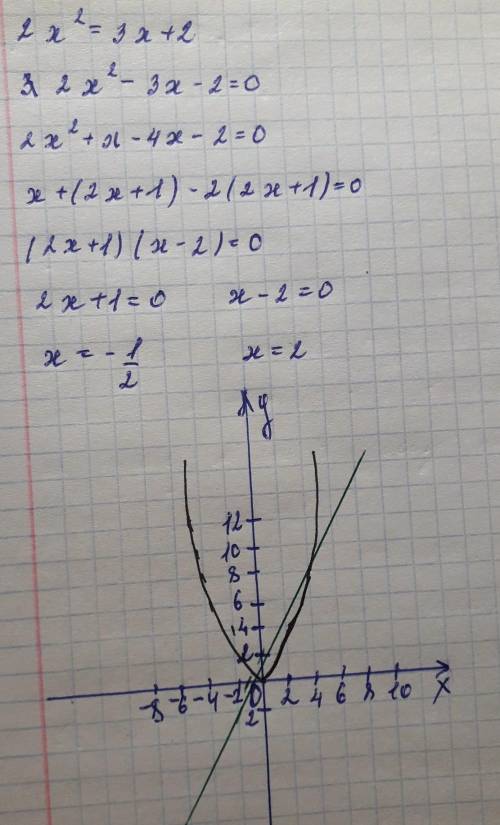 2x² = 3x + 2
2x² - 3x - 2 = 0
2x² + x - 4x - 2 = 0
x + (2x + 1) - 2(2x + 1) = 0
(2x + 1)(x - 2) = 0
2x + 1 = 0 x - 2 = 0
x = - 1/2 x = 2
y
12
10
8
6
4
2
-8 -6 -4 -2 0 2 4 6 8 10 x
2